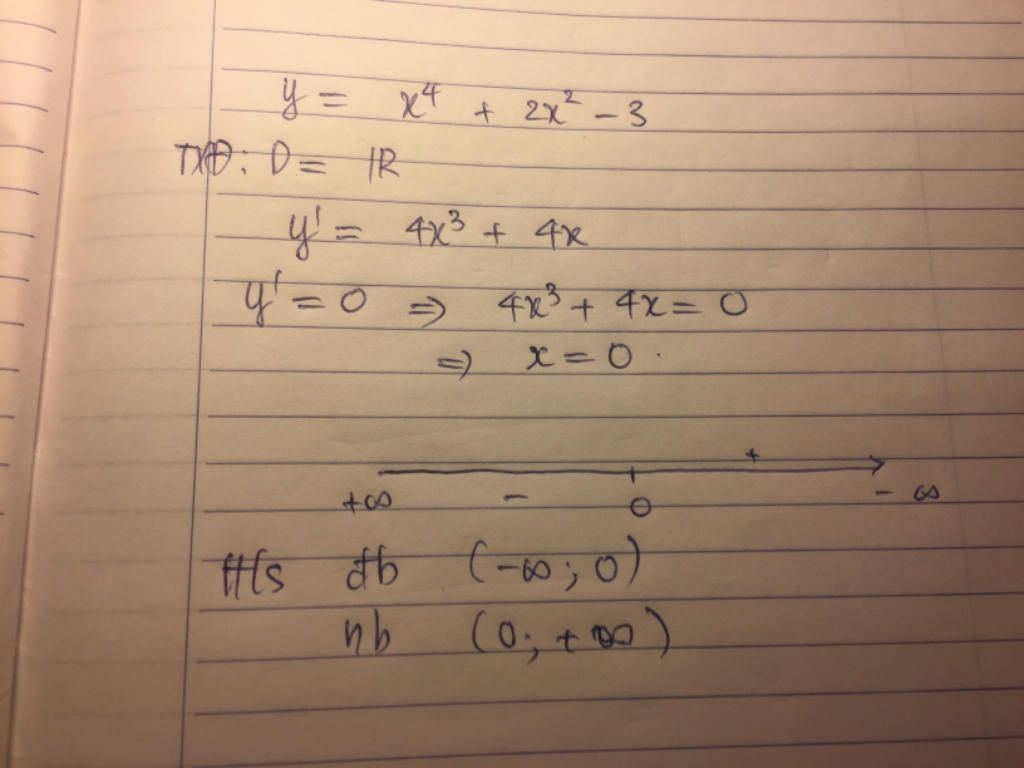 y = x⁴ + 2x² − 3
TXĐ: D = ℝ
y' = 4x³ + 4x
y' = 0 ⇒ 4x³ + 4x = 0
⇒ x = 0.
+
+∞ − 0 − ∞
Hs đb (−∞; 0)
nb (0; +∞)